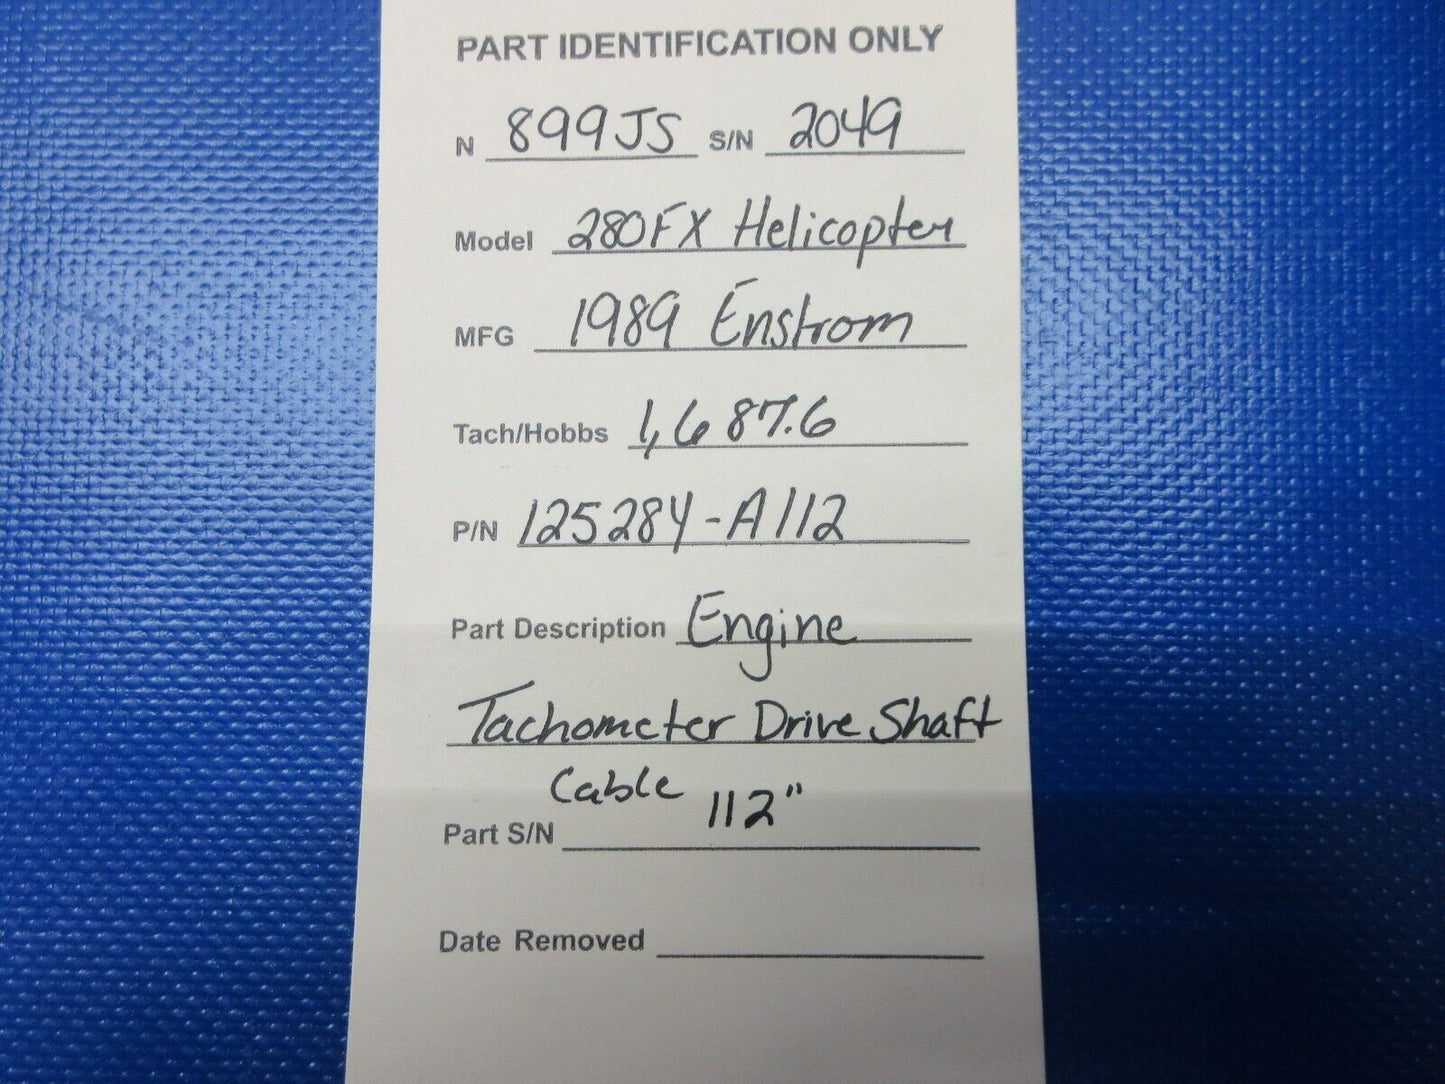 PART IDENTIFICATION ONLY
N 899JS S/N 2049
Model 280FX Helicopter
MFG 1989 Enstrom
Tach/Hobbs 1,687.6
P/N 125284-A112
Part Description Engine
Tachometer Drive Shaft
Cable 112"
Part S/N
Date Removed